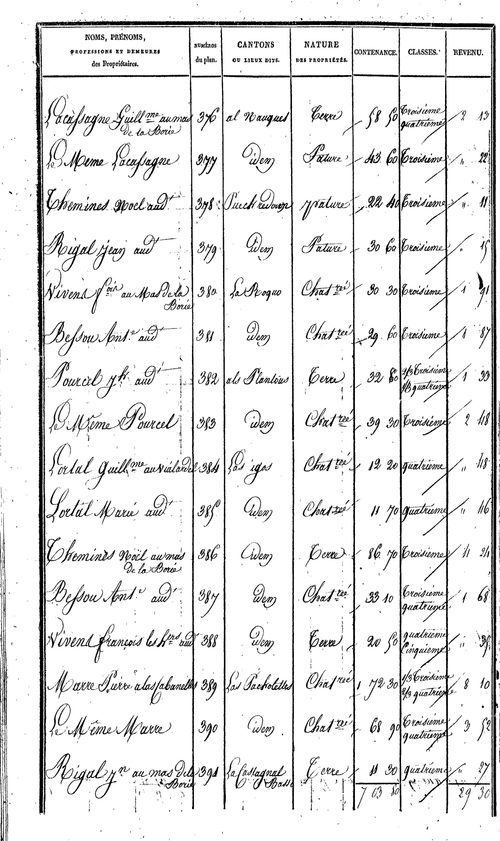 NOMS, PRÉNOMS, PROFESSIONS ET DEMEURES des Propriétaires. NUMÉROS du plan. CANTONS OU LIEUX DITS. NATURE DES PROPRIÉTÉS. CONTENANCE. CLASSES. REVENU.
Lacassagne Guill.me au mas de la Borie 376 al Nauques Terre 58 50 Troisieme quatrieme 2 13
Le Meme Lacassagne 377 idem Pature 43 60 Troisieme " 22
Themines Noel aud.t 378 Puech redoun pature 22 40 Troisieme " 11
Rigal jean aud.t 379 idem Pature 30 60 Troisieme " 15
Vivens f.ois au Mas de la Borie 380 La Roquo Chat.rée 30 30 Troisieme 1 91
Bessou Ant.e aud.t 381 idem Chat.rée 29 60 Troisieme 1 87
Pourcel aud.t 382 als Plantous Terre 32 80 1/3 Troisieme 2/3 quatrieme 1 33
Le Même Pourcel 383 idem Chat.rée 39 30 Troisieme 2 48
Lortal Guill.me au vialardel 384 Las igos Chat.rée 12 20 quatrieme " 48
Lortal Marie aud.t 385 idem Chat.rée 11 70 quatrieme " 46
Themines Noël au mas de la Borie 386 idem Terre 86 70 Troisieme 4 24
Bessou Ant.e aud.t 387 idem Chat.rée 33 10 Troisieme quatrieme 1 68
Vivens françois les h.ers aud.t 388 idem Terre 20 50 quatrieme Cinquieme " 39
Marre Pierre a las Cabanelles 389 Las Pacholelles Chat.rée 1 72 30 1/3 Troisieme 2/3 quatrieme 8 10
Le Même Marre 390 idem Chat.rée 68 90 Troisieme quatrieme 3 52
Rigal J.n au mas de la Borie 391 La Castagnal Basse Terre 11 30 quatrieme " 27
7 63 80 29 30